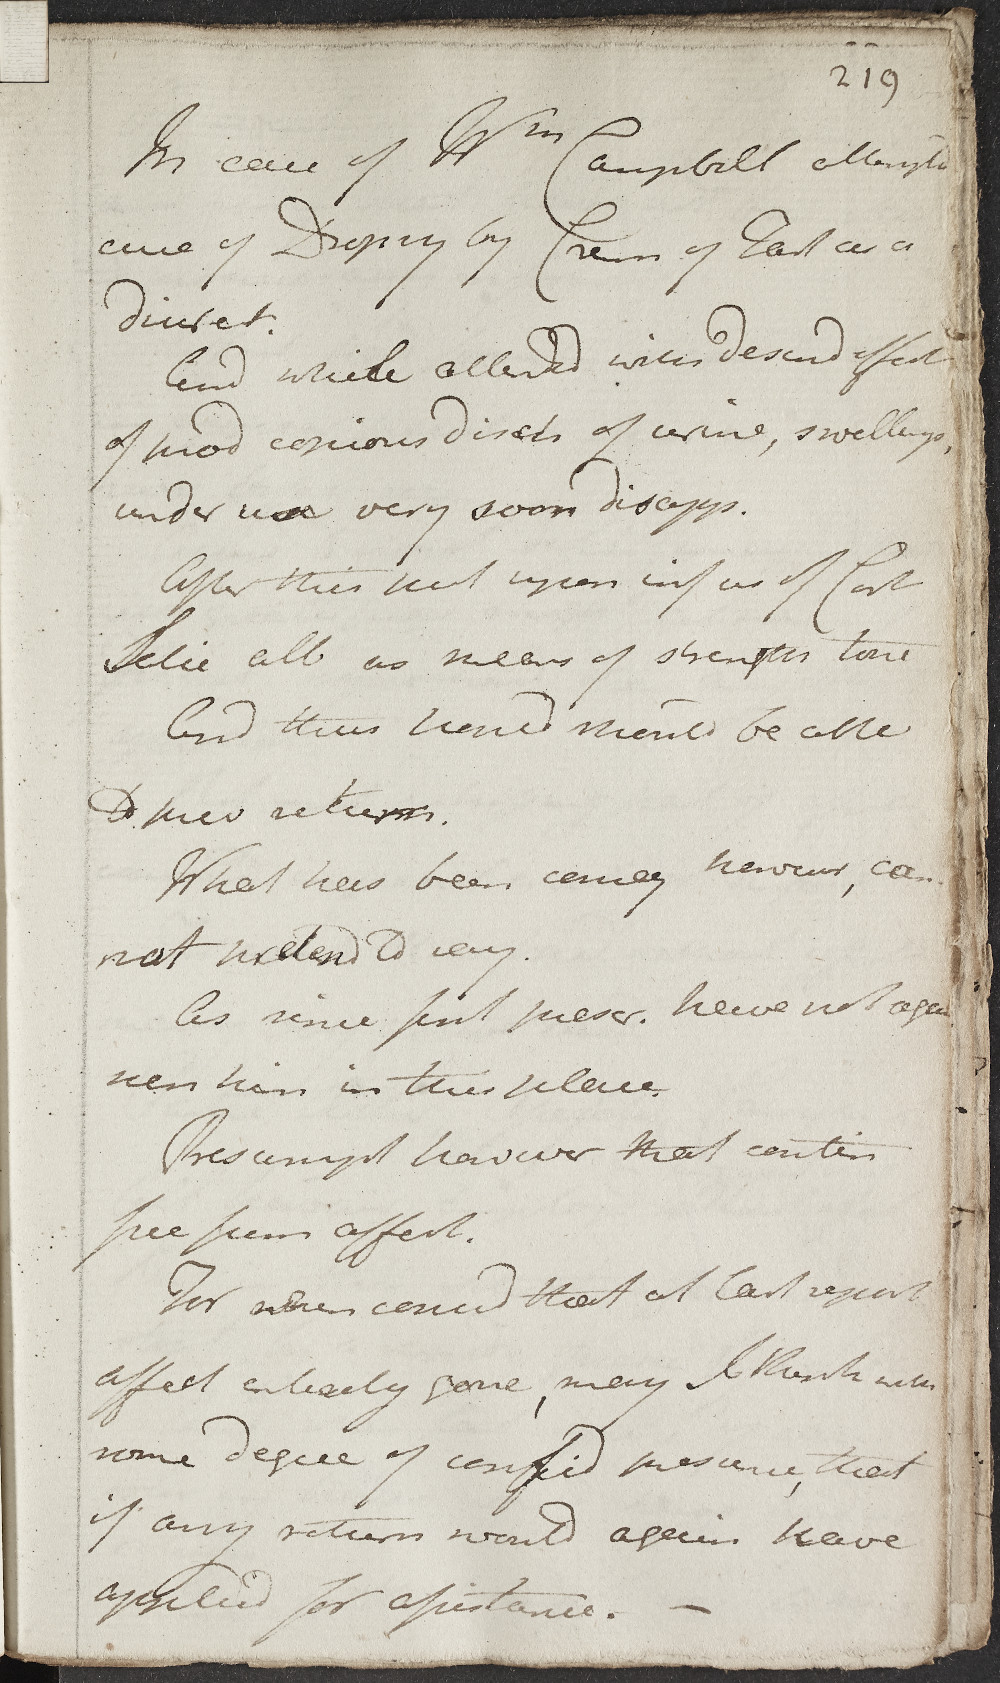 219
In case of Wm Campbell attempted
cure of Dropsy by Crem of Tart as a
diuret.
And while attended with desired effect
of prod copious disch of urine, swellings,
under use very soon disapp.
After this put upon infus of Cort
Salic alb as means of strength tone
And thus hoped should be able
to prev return.
What has been conseq however, can
not pretend to say.
As since first prescr. have not again
seen him in this place.
Presumpt however that contin
free from affect.
For when consid that at last report
affect entirely gone, may I think with
some degree of confid presume, that
if any return would again have
applied for assistance. —